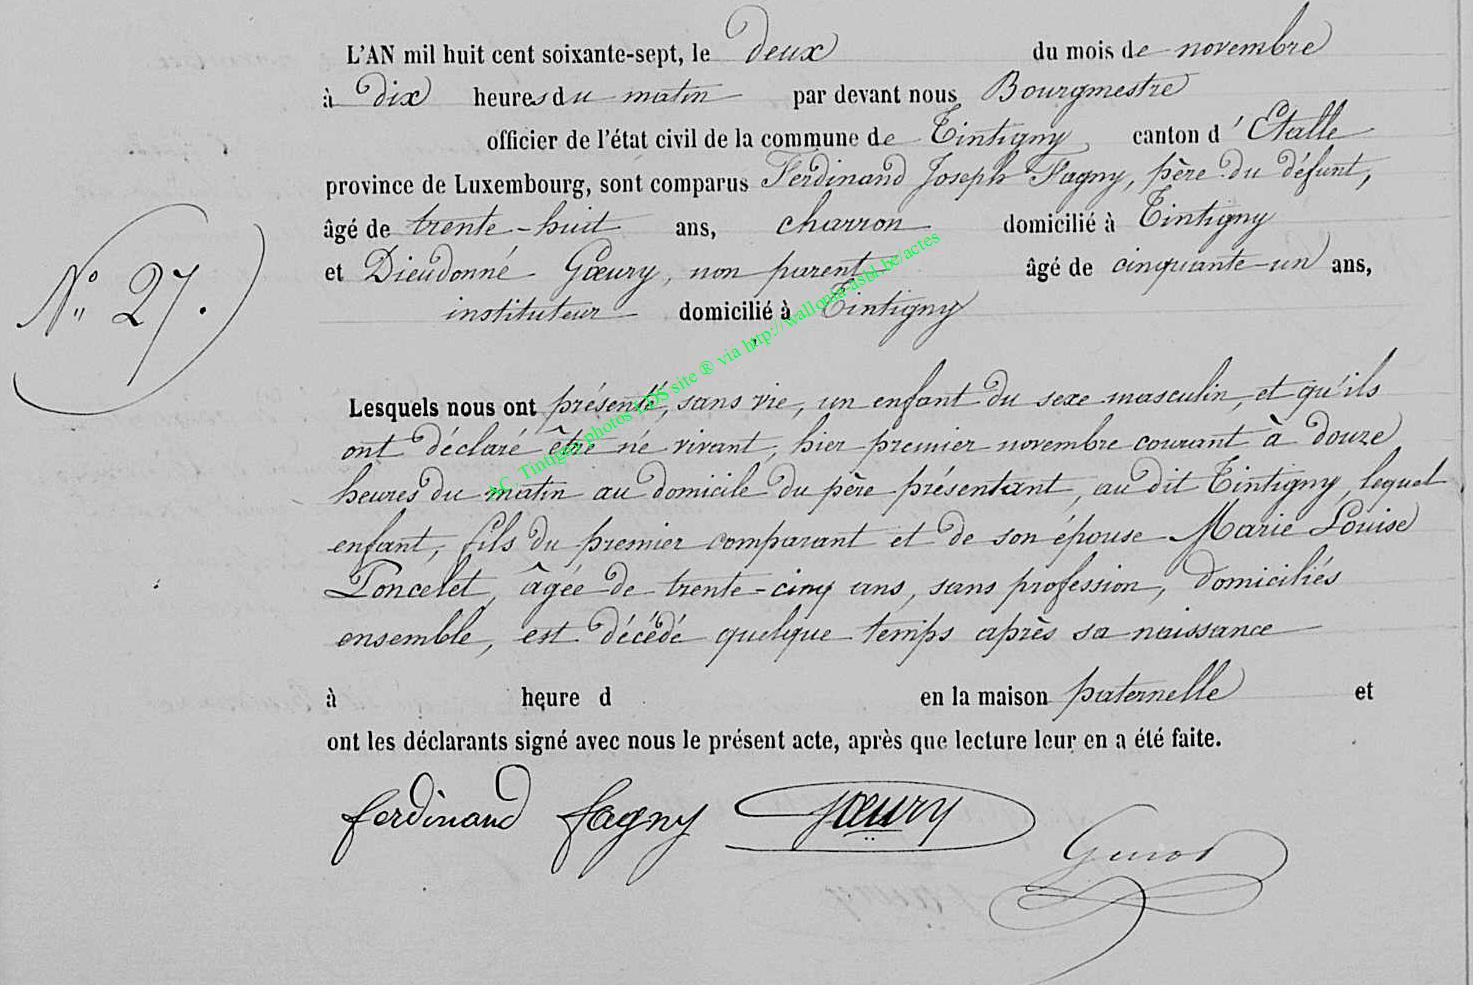 L'AN mil huit cent soixante-sept, le deux du mois de novembre
à dix heures du matin par devant nous Bourgmestre
officier de l'état civil de la commune de Tintigny canton d'Etalle
province de Luxembourg, sont comparus Ferdinand Joseph Fagny, père du défunt,
âgé de trente-huit ans, charron domicilié à Tintigny
et Dieudonné Gœury, non parent âgé de cinquante-un ans,
instituteur domicilié à Tintigny
N° 27.
Lesquels nous ont présenté, sans vie, un enfant du sexe masculin, et qu'ils
ont déclaré être né vivant, hier premier novembre courant à douze
heures du matin au domicile du père présentant, au dit Tintigny, lequel
enfant, fils du premier comparant et de son épouse Marie Louise
Poncelet, âgée de trente-cinq ans, sans profession, domiciliés
ensemble, est décédé quelque temps après sa naissance
à heure d en la maison paternelle et
ont les déclarants signé avec nous le présent acte, après que lecture leur en a été faite.
ferdinand fagny Gœury
AC Tintigny photos LDS site ® via http://wallonia-asbl.be/actes